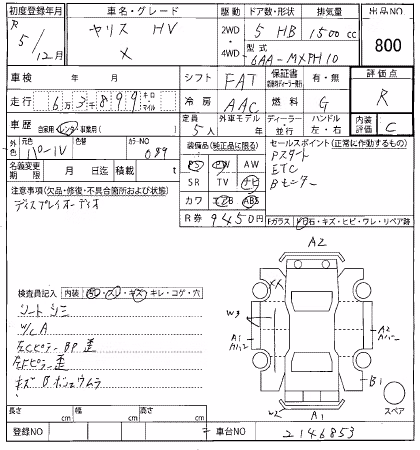 初度登録年月 車名・グレード 駆動 ドア数・形状 排気量 出品NO
R 5年 12月 ヤリス HV X 2WD・4WD 5 HB 1500cc 800
型式 6AA-MXPH10
車検 年 月 シフト FAT 保証書 有・無 評価点 R
走行 6万3千899 キロ マイル 冷房 AAC 燃料 G
車歴 自家用 レンタ 事業用( ) 定員 5人 外車モデル ディーラー 並行 ハンドル 左・右 内装評価 C
外色 元色 パールV 色替 カラーNO 089 装備品(純正品に限る) セールスポイント(正常に作動するもの)
名義変更期限 月 日迄 積載 t PS PW AW Pスタート
注意事項(欠品・修復・不具合箇所および状態) SR TV ナビ ETC
ディスプレイオーディオ カワ エアB ABS Bモニター
R券 9450円 Fガラス 飛石・キズ・ヒビ・ワレ・リペア跡
A2
検査員記入 内装 キレ・コゲ・穴
シートシミ
W/C A
左Cピラー BP歪
左Fピラー歪
XX
W3
A1
A2
カバー
B1
W2
A1
スペア
長さ cm 幅 cm 高さ cm
登録NO 車台NO 2146853